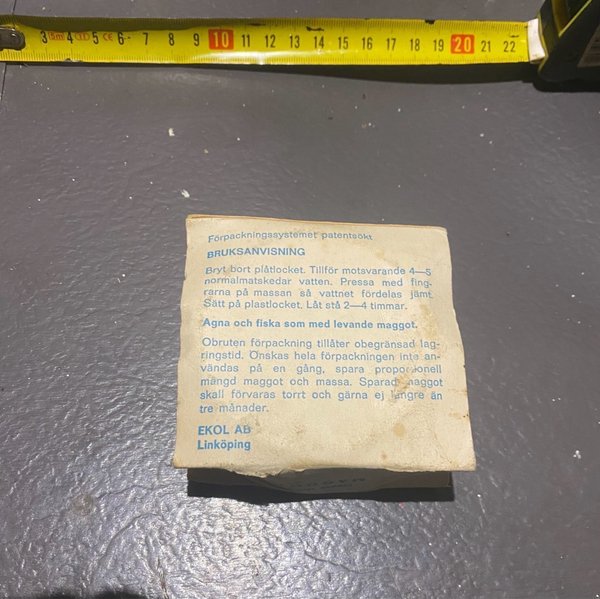 3 5m 4 CE 5 6 7 8 9 10 11 12 13 14 15 16 17 18 19 20 21 22
Förpackningssystemet patentsökt
BRUKSANVISNING
Bryt bort plåtlocket. Tillför motsvarande 4—5
normalmatskedar vatten. Pressa med fing-
rarna på massan så vattnet fördelas jämt.
Sätt på plastlocket. Låt stå 2—4 timmar.
Agna och fiska som med levande maggot.
Obruten förpackning tillåter obegränsad lag-
ringstid. Önskas hela förpackningen inte an-
vändas på en gång, spara proportionell
mängd maggot och massa. Sparad maggot
skall förvaras torrt och gärna ej längre än
tre månader.
EKOL AB
Linköping